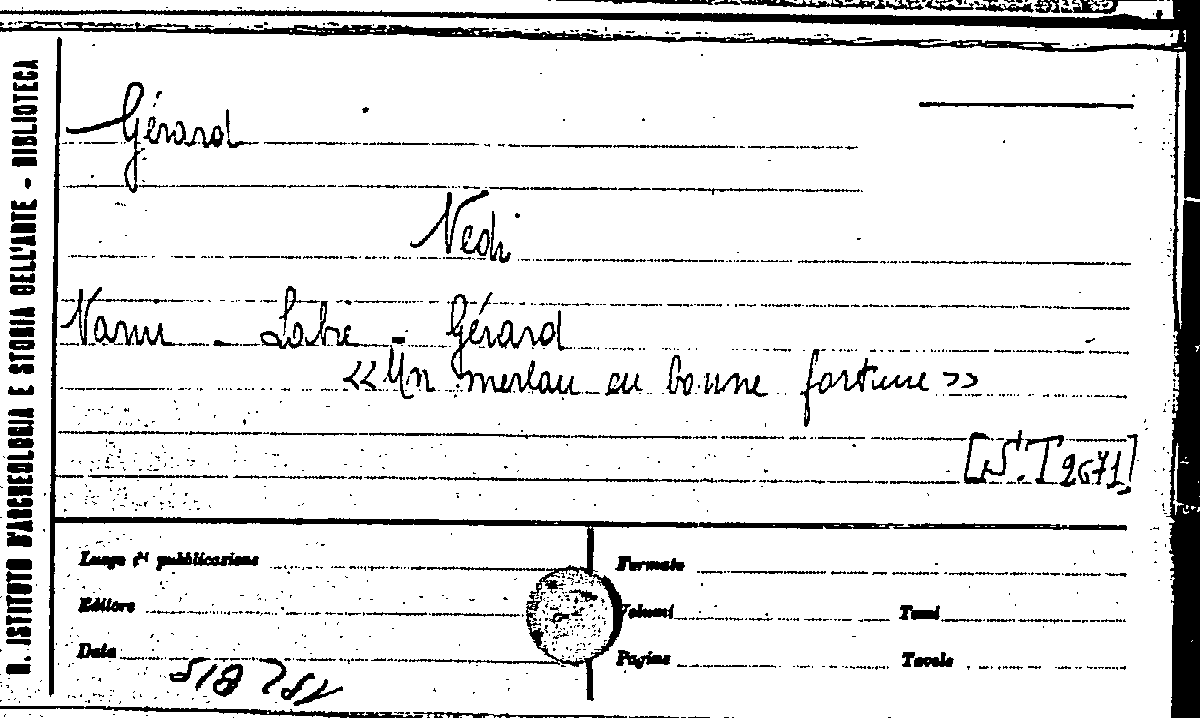 R. ISTITUTO D'ARCHEOLOGIA E STORIA DELL'ARTE - BIBLIOTECA
Gérard
Vedi
Vanu - Labie - Gérard
<<Un merlau en bonne fortune>>
[S.T 2671]
Luogo di pubblicazione
Formato
Editore
Volumi
Tomi
Data
Pagine
Tavole